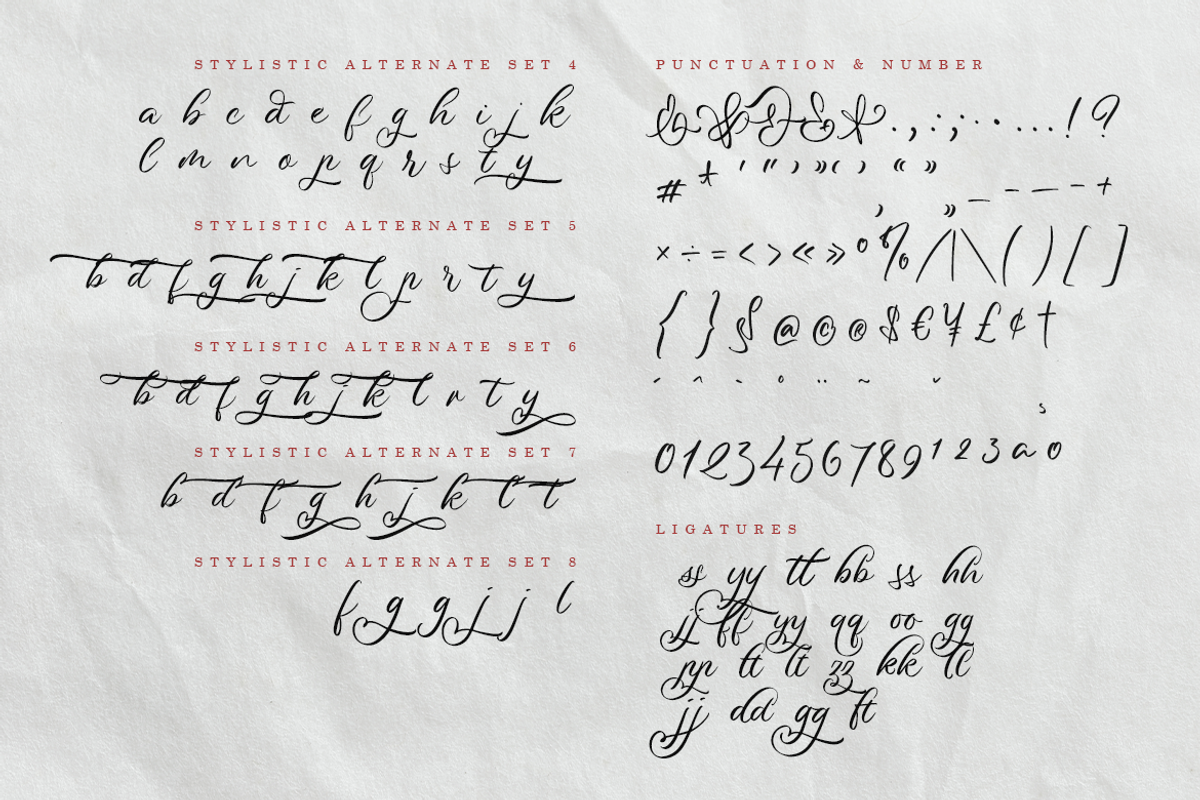 STYLISTIC ALTERNATE SET 4
a b c d e f g h i j k
l m n o p q r s t y
STYLISTIC ALTERNATE SET 5
b d f g h j k l p r t y
STYLISTIC ALTERNATE SET 6
b d f g h j k l r t y
STYLISTIC ALTERNATE SET 7
b d f g h j k l t
STYLISTIC ALTERNATE SET 8
f g g j j l
PUNCTUATION & NUMBER
& & & & & . , : ; · • … ! ?
# * ' " ’ ” ‘ ’ “ ” ‚ „ _ - — - +
× ÷ = < > « » ° % / | \ ( ) [ ]
{ } § @ © ® $ € ¥ £ ¢ †
´ ^ ` ° ¨ ~ ˇ
0 1 2 3 4 5 6 7 8 9 ¹ ² ³ ª º
LIGATURES
ss yy tt bb ss hh
jj ff yy qq oo gg
pp tt lt zz kk ll
jj dd gg ft